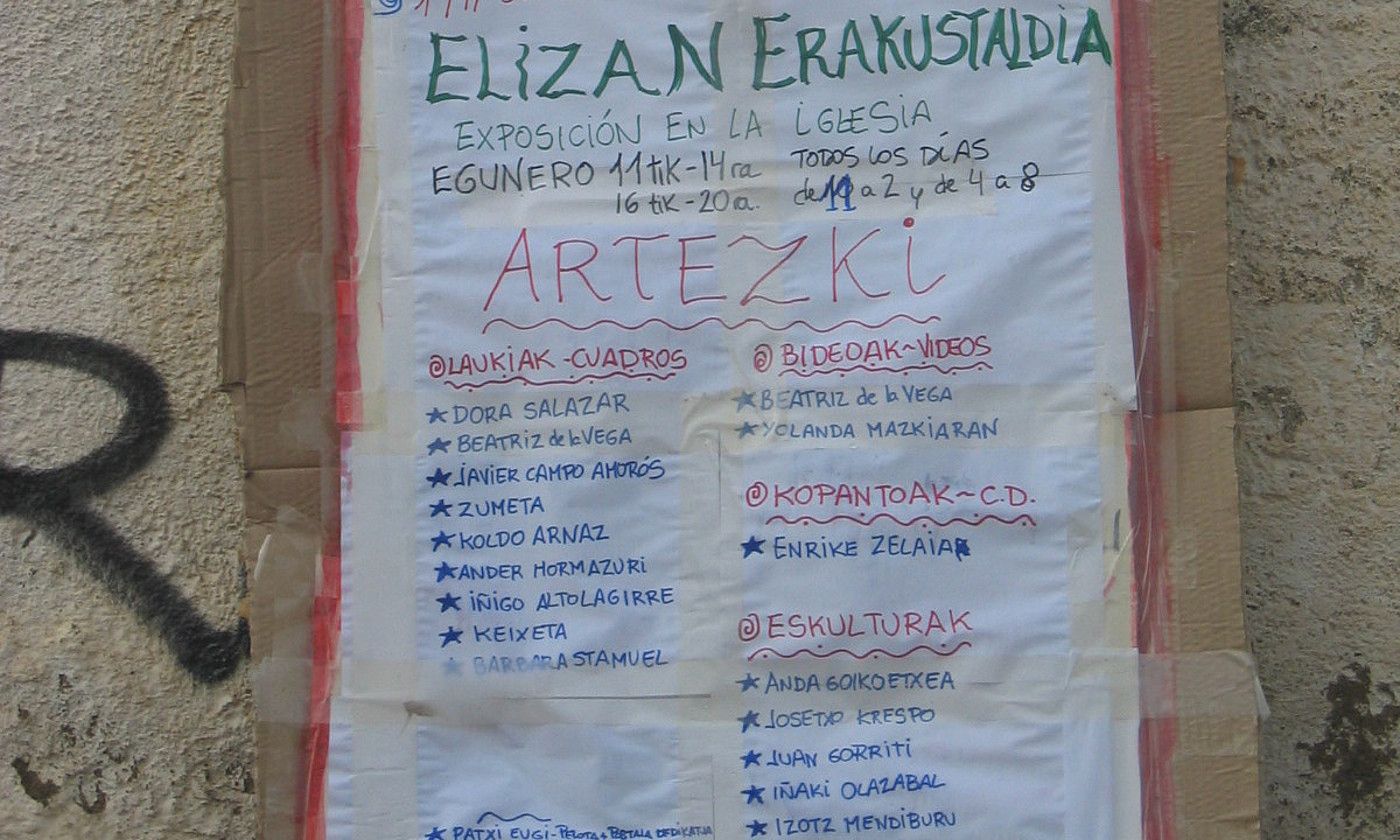 ELIZAN ERAKUSTALDIA
EXPOSICIÓN EN LA IGLESIA
EGUNERO 11tik-14ra
16 tik-20a.
TODOS LOS DÍAS
de 11 a 2 y de 4 a 8
ARTEZKI
LAUKIAK - CUADROS
DORA SALAZAR
BEATRIZ de la VEGA
JAVIER CAMPO AMORÓS
ZUMETA
KOLDO ARNAZ
ANDER HORMAZURI
IÑIGO ALTOLAGIRRE
KEIXETA
BARBARA STAMUEL
PATXI EUGI - PELOTA + DEDIKATJA
BIDEOAK ~ VIDEOS
BEATRIZ de la VEGA
YOLANDA MAZKIARAN
KOPANTOAK ~ C.D.
ENRIKE ZELAIA
ESKULTURAK
ANDA GOIKOETXEA
JOSETXO KRESPO
JUAN GORRITI
IÑAKI OLAZABAL
IZOTZ MENDIBURU